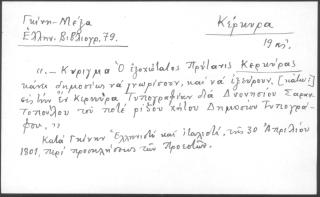 Γκίνη-Μέξα
Ἑλλην. Βιβλιογρ. 79.
Κέρκυρα
19 αἰ.
"— Κήρυγμα Ὁ ἐξοχώτατος Πρύτανις Κερκύρας
κάνει δημοσίως νὰ γνωρίσουν, καὶ νὰ ἠξεύρουν, [κάτω:]
εἰς τὴν ἐν Κερκύρᾳ Τυπογραφίαν διὰ Διονυσίου Σαραν-
τοπούλου τοῦ ποτέ ρίζου Δημοσίου Τυπογρά-
φου.,"
Κατὰ Γκίνην Ἑλληνιστὶ καὶ ἰταλιστί, τῆς 30 Ἀπριλίου
1801, περὶ προσκλήσεως τῶν